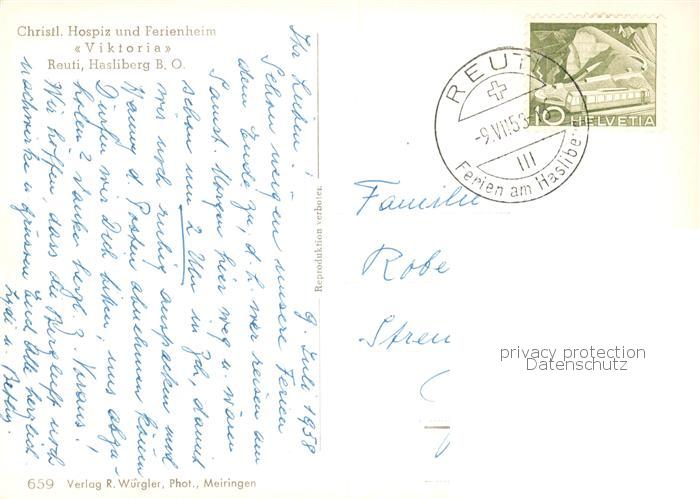 Christl. Hospiz und Ferienheim
«Viktoria»
Reuti, Hasliberg B. O.
9. Juli 1958
Ihr Lieben!
Schon neigen unsere Ferien
dem Ende zu, d. h. wir reisen am
Samst. Morgen hier weg u. wären
schon um 2 Uhr in Zch, damit
wir noch ruhig auspacken und
Hanny d. Posten abnehmen können
Dürfen wir Dich bitten, uns abzu-
holen? Danke herzl. z. Voraus!
Wir hoffen, dass die Bergluft noch
nachwirke u. grüssen Euch alle herzlich
Lydi u. Betty
Reproduktion verboten.
659 Verlag R. Würgler, Phot., Meiringen
REUTI
-9.VII.58-
III
Ferien am Haslibe
10 HELVETIA
Familie
Robe
Streu
privacy protection
Datenschutz